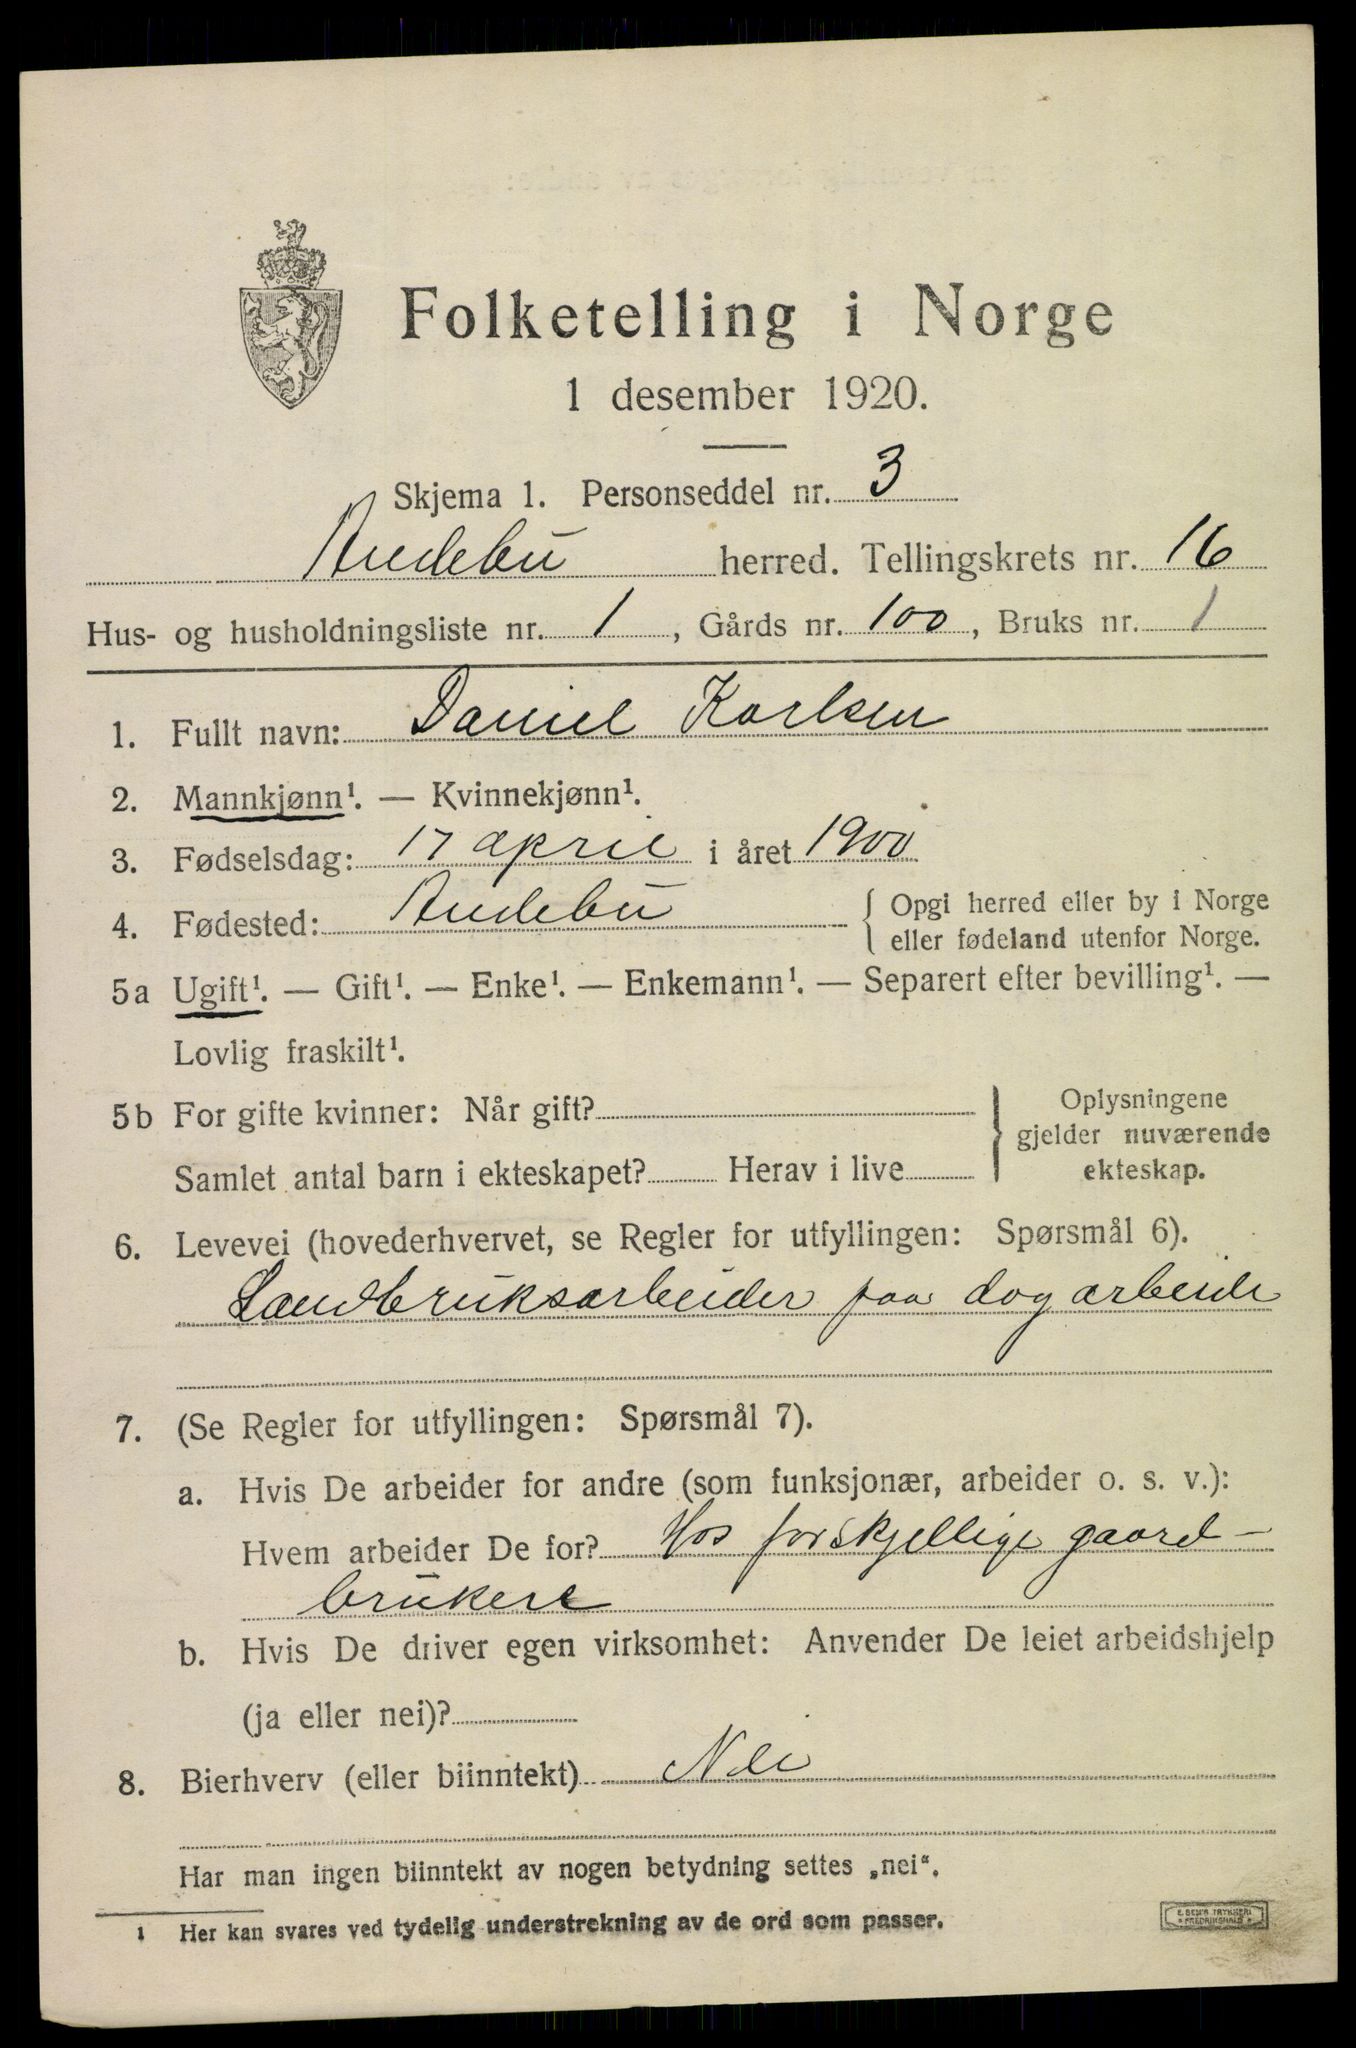 Folketelling i Norge
1 desember 1920.
Skjema 1. Personseddel nr. 3
Andebu herred. Tellingskrets nr. 16
Hus- og husholdningsliste nr. 1, Gårds nr. 100, Bruks nr. 1
1. Fullt navn: Daniel Karlsen
2. Mannkjønn¹. — Kvinnekjønn¹.
3. Fødselsdag: 17 april i året 1900
4. Fødested: Andebu { Opgi herred eller by i Norge
eller fødeland utenfor Norge.
5a Ugift¹. — Gift¹. — Enke¹. — Enkemann¹. — Separert efter bevilling¹. —
Lovlig fraskilt¹.
5b For gifte kvinner: Når gift? } Oplysningene
gjelder nuværende
Samlet antal barn i ekteskapet? Herav i live ekteskap.
6. Levevei (hovederhvervet, se Regler for utfyllingen: Spørsmål 6).
Landbruksarbeider paa dagarbeide
7. (Se Regler for utfyllingen: Spørsmål 7).
a. Hvis De arbeider for andre (som funksjonær, arbeider o. s. v.):
Hvem arbeider De for? Hos forskjellige gaard-
brukere
b. Hvis De driver egen virksomhet: Anvender De leiet arbeidshjelp
(ja eller nei)?
8. Bierhverv (eller biinntekt) Nei
Har man ingen biinntekt av nogen betydning settes „nei“.
1 Her kan svares ved tydelig understrekning av de ord som passer.
E. SEM'S TRYKKERI
FREDRIKSHALD